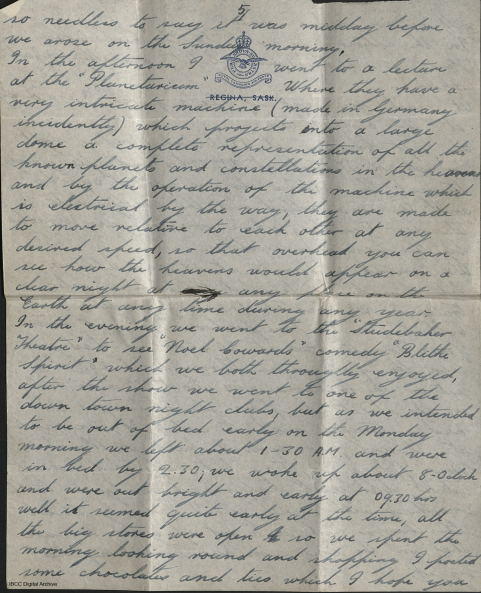 5/
so needless to say it was midday before
we arose on the Sunday morning.
In the afternoon I went to a lecture
at the "Planetaricum" Where they have a
REGINA, SASK.
very intricate machine (made in Germany
incidently) which projects onto a large
dome a complete representation of all the
known planets and constellations in the heavens
and by the operation of the machine which
is electrical by the way, they are made
to move relative to each other at any
desired speed, so that overhead you can
see how the heavens would appear on a
clear night at any place on the
Earth at any time during any year.
In the evening we went to the "Studebaker
Theatre" to see "Noel Cowards" comedy "Blithe
Spirit" which we both throughly enjoyed,
after the show we went to one of the
down town night clubs, but as we intended
to be out of bed early on the Monday
morning we left about 1-30 A.M. and were
in bed by 2.30; we woke up about 8-Oclock
and were out bright and early at 0930 hrs
well it seemed quite early at the time, all
the big stores were open so we spent the
morning looking round and shopping I posted
some chocolates and ties which I hope you
IBCC Digital Archive